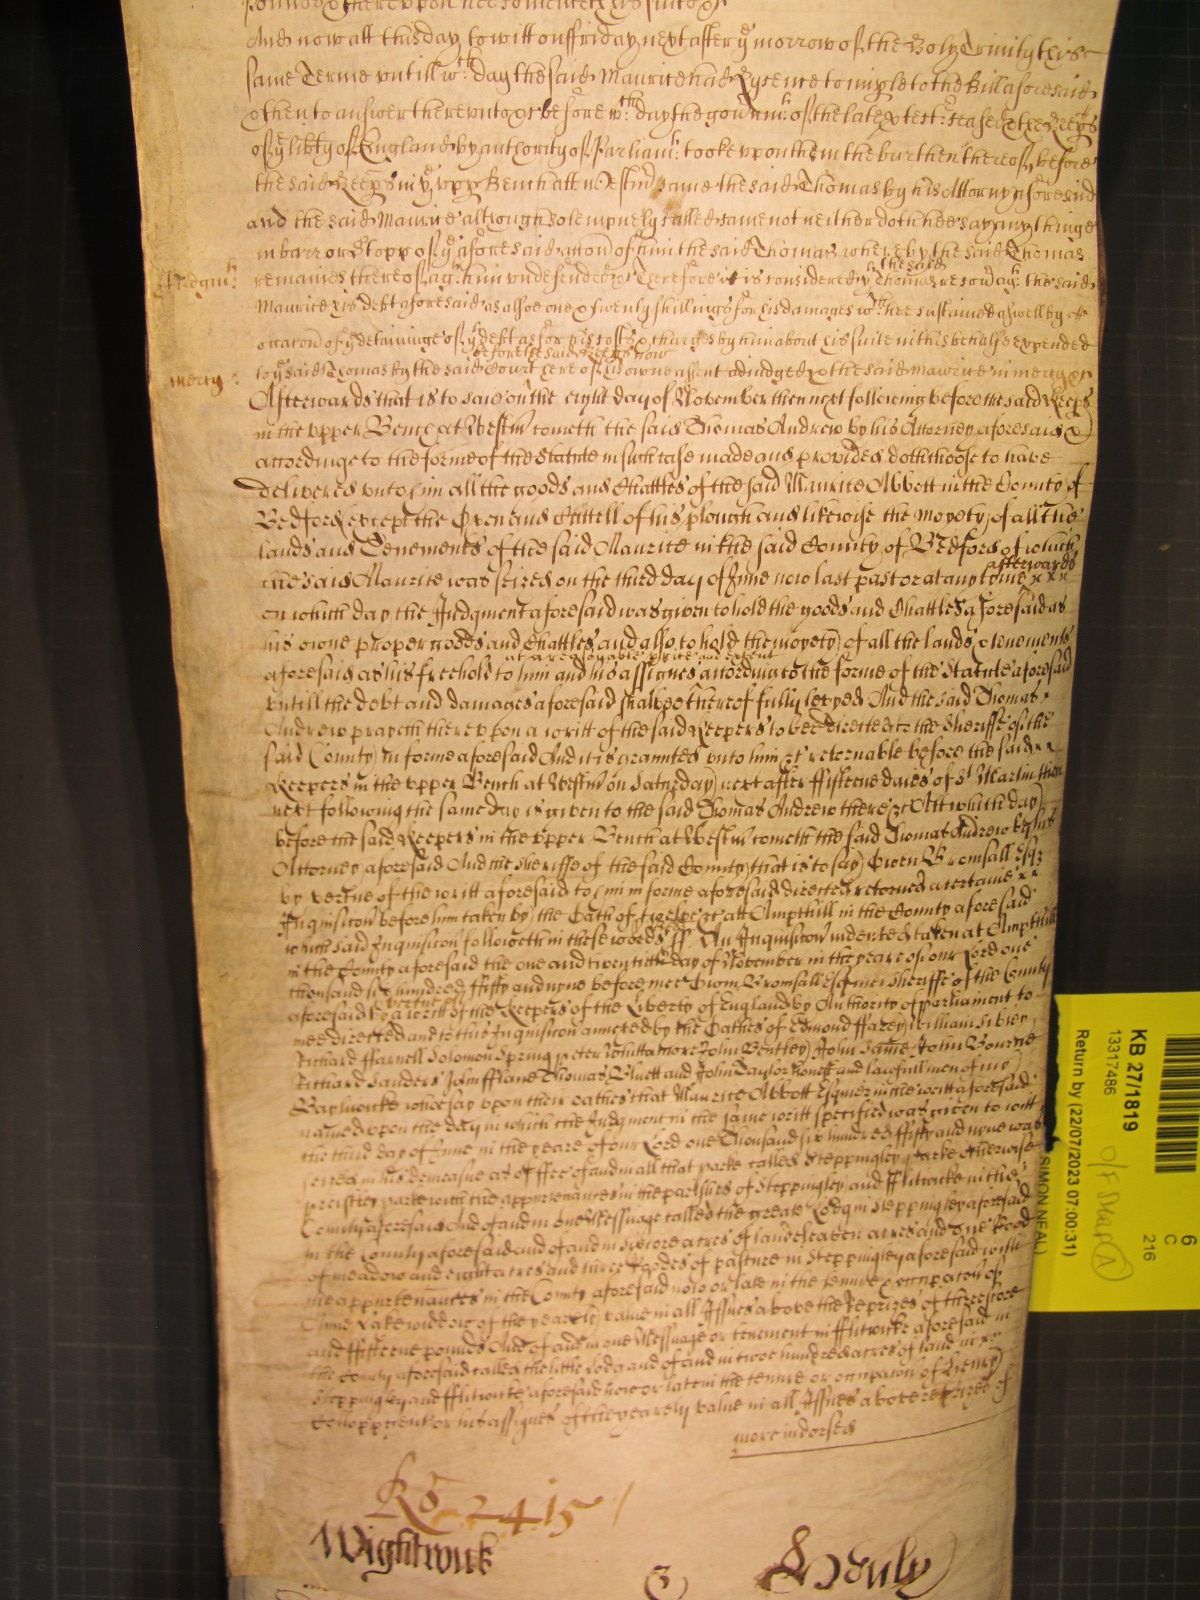 And now att this day to witt on ffriday next after ye morrow of the Holy Trinity this
same Terme untill wch day the said Maurice had Lycence to imple to the Bill aforesaid
& then to answer thereunto &c before wch day the of the late & Keeps
of ye libty of England by authority of Parliamt: tooke upon them the burthen thereof before
the said Keeps in ye upp Bench att Westm came the said Thomas by his Attorny aforesaid
and the said Maurice although solempnely called came not neither doth hee say any thinge
in barr or stopp of ye aforesaid accon of him the said Thomas whereby the said Thomas
remaines thereof agt him undefended &c Therefore it is considered yt the said Thomas recov agt the said
Maurice his debt aforesaid as alsoe one & twenty shillings for his damages wch hee sustained aswell by
occacon of ye detaininge of ye debt as for his costs & charges by him about his suite in this behalfe expended
to ye said Thomas by the said Court here before the said Keeps now of his owne assent adiudged & the said Maurice in mercy &c
mercy:
Afterwards that is to said on the eight day of November then next following before the said Keeps
in the upper Bench at Westm cometh the said Thomas Andrew by his Attorney aforesaid &
accordinge to the forme of the Statute in such case made and provided doth choose to have
delivered unto him all the goods and Chattles of the said Maurice Abbott in the County of
Bedford except the Oxen and Cattell of his plough and likewise the moyety of all the
lands and Tenements of the said Maurice in the said County of Bedford of which
the said Maurice was seized on the third day of June now last past or at any tyme afterwards xxx
on which day the Judgment aforesaid was given to hold the goods and Chattles aforesaid as
his owne proper goods and Chattles and also to hold the moyety of all the lands & tenements
aforesaid as his freehold to him and his assignes at a reasonable price and extent according to the forme of the Statute aforesaid
untill the debt and damages aforesaid shalbe thereof fully levyed And the said Thomas
Andrew prayeth thereupon a writt of the said Keepers to bee directed to the Sheriffe of the
said County in forme aforesaid And it is graunted unto him &c retornable before the said xx
Keepers in the upper Bench at Westm on Saturday next after ffifteene daies of St Martin then
next following the same day is given to the said Thomas Andrew there &c Att which day
before the said Keepers in the upper Bench at Westm cometh the said Thomas Andrew by his
Attorney aforesaid And the Sheriffe of the said County that is to say Owen Bromsall Esqz
by vertue of the writt aforesaid to him in forme aforesaid directed retorned a certaine xx
Inquisicon before him taken by the Oath of twelve &c att Ampthill in the County aforesaid
which said Inquisicon followeth in these words ss. An Inquisicon indented taken at Ampthill
in the County aforesaid the one and twentith day of November in the yeare of our Lord one
thousand six hundred ffifty and nyne before mee Owen Bromsall Esquier Sheriffe of the County
aforesaid by vertue of a writt of the Keepers of the Liberty of England by Authority of parliament to
mee directed and to this Inquisicon annexed by the Oathes of Edmond ffarey William Sibley
Richard ffarnell Solomon Spring peter Whittamore John Bentley John Came John Bourne
Richard Sanders John fflane Thomas Bluett and John Taylor honest and lawfull men of my
Baylwicke whoe say upon their oathes that Maurice Abbott Esquier in the writt aforesaid
named upon the day in which the Judgment in the same writt specified was given to witt
the third day of June in the yeare of our Lord one Thousand six hundred ffifty and nyne was
seized in his demeasne as of ffee of and in all that parke called Steppingley parke otherwise
parke with the appurtenances in the parishes of Steppingley and fflittwicke in the
County aforesaid And of and in one Messuage called the greate Lodg in Steppingley aforesaid
in the County aforesaid and of and in acres of land eleaven acres and one Rood
of meadow and eight acres and three Roodes of pasture in Steppingley aforesaid with
the appurtenances in the County aforesaid now or late in the tenure & occupacon of
Lake widdow of the yearely value in all Issues above the Reprizes of threescore
and ffifteene pounds And of and in one Messuage or tenement in fflittwicke aforesaid in
the County aforesaid called the little Lodg and of and in twoe hundred acres of land in
Steppingley and fflittwicke aforesaid now or late in the tenure or occupacon of Henry
or his assignes of the yearely value in all Issues above reprizes of
more indorsed
Ro 2415
Wightwick
(3)
KB 27/1819
13317486
Return by (22/07/2023 07:00:31)
SIMON NEAL)
6
C
216
O/F Map (A)